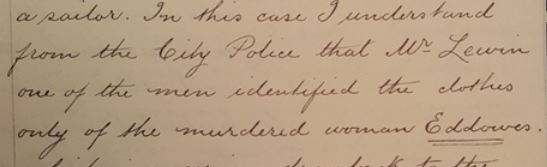 a sailor. In this case I understand
from the City Police that Mr Lewin
one of the men identified the clothes
only of the murdered woman Eddowes.
back to the